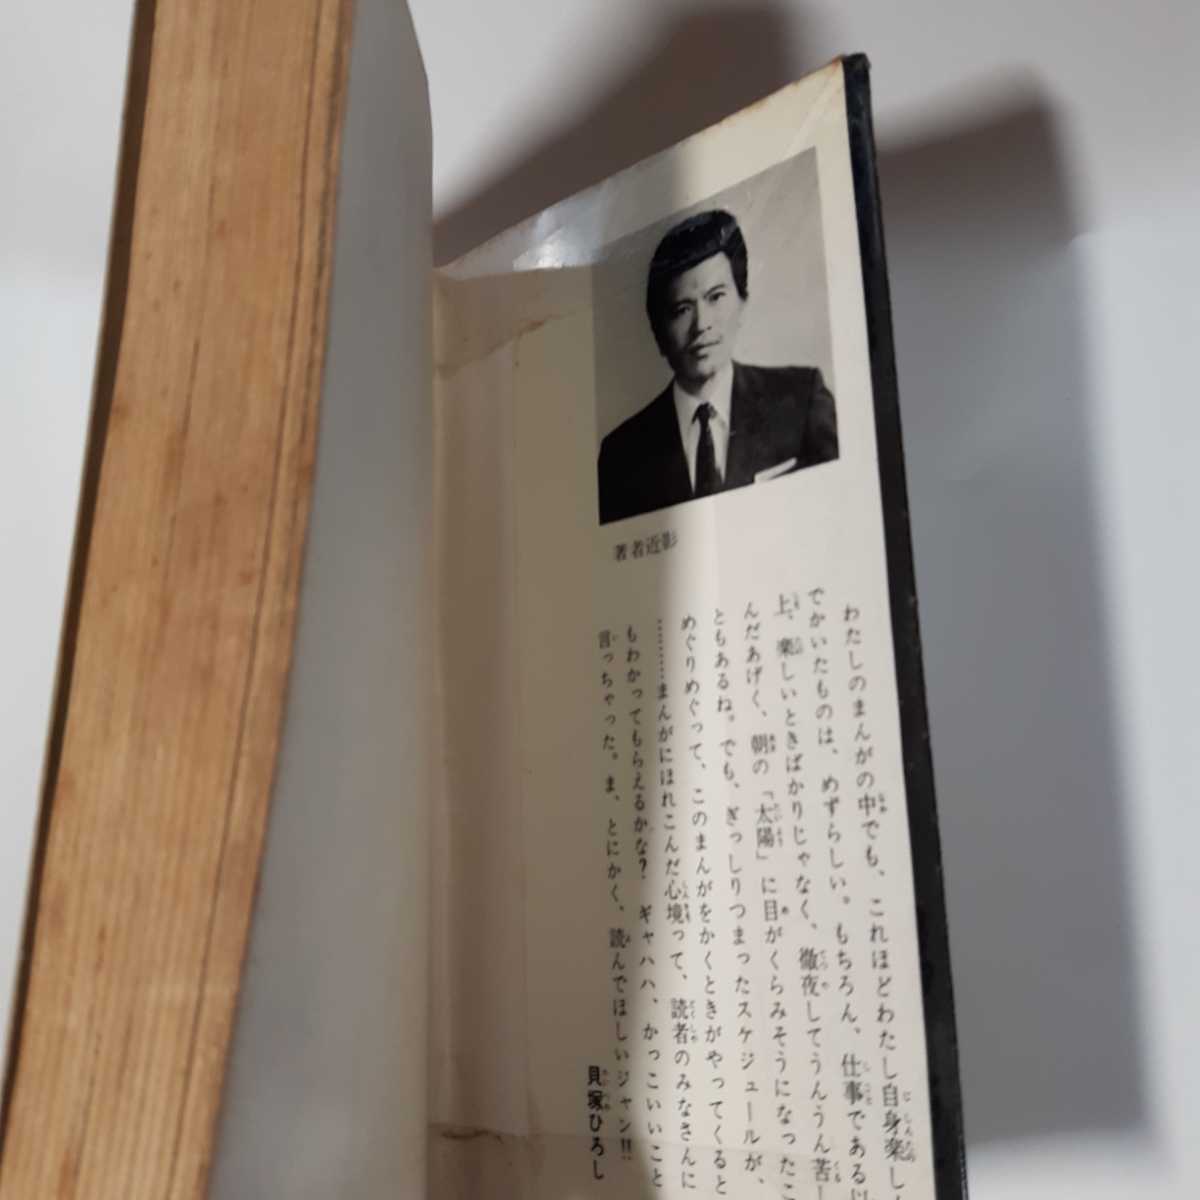 著者近影
わたしのまんがの中でも、これほどわたし自身楽し
でかいたものは、めずらしい。もちろん、仕事である以
上、楽しいときばかりじゃなく、徹夜してうんうん苦し
んだあげく、朝の「太陽」に目がくらみそうになったこ
ともあるね。でも、ぎっしりつまったスケジュールが、
めぐりめぐって、このまんがをかくときがやってくると
………まんがにほれこんだ心境って、読者のみなさんに
もわかってもらえるかな？ ギャハハ、かっこいいこと
言っちゃった。ま、とにかく、読んでほしいジャン!!
貝塚ひろし